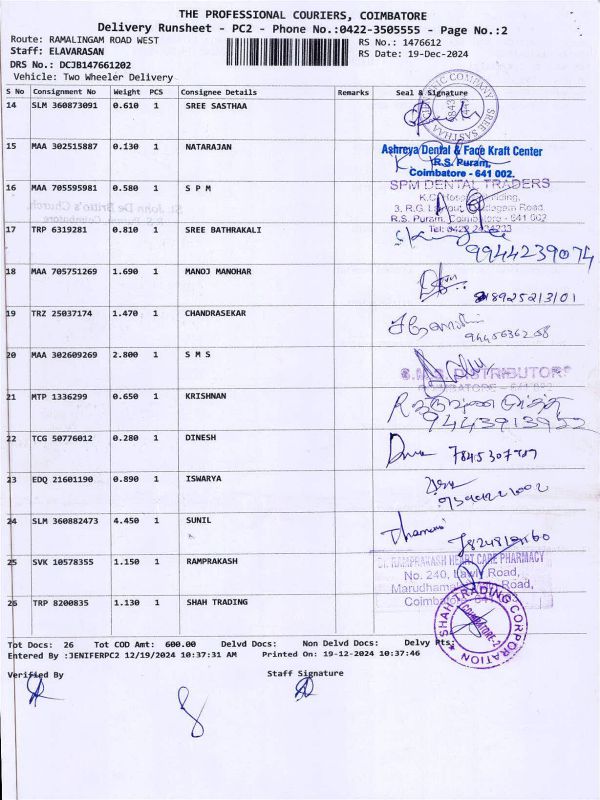 THE PROFESSIONAL COURIERS, COIMBATORE
Delivery Runsheet - PC2 - Phone No.:0422-3505555 - Page No.:2
Route: RAMALINGAM ROAD WEST
RS No.: 1476612
Staff: ELAVARASAN
RS Date: 19-Dec-2024
DRS No.: DCJB147661202
Vehicle: Two Wheeler Delivery
S No Consignment No Weight PCS Consignee Details Remarks Seal & Signature
14 SLM 360873091 0.610 1 SREE SASTHAA
15 MAA 302515887 0.130 1 NATARAJAN
Ashreya Dental & Face Kraft Center
R.S. Puram,
Coimbatore - 641 002.
16 MAA 705595981 0.580 1 S P M
SPM DENTAL TRADERS
R.S. Puram, Coimbatore - 641 002
17 TRP 6319281 0.810 1 SREE BATHRAKALI
9944239074
18 MAA 705751269 1.690 1 MANOJ MANOHAR
8925213101
19 TRZ 25037174 1.470 1 CHANDRASEKAR
20 MAA 302609269 2.800 1 S M S
S.M.S. DISTRIBUTORS
21 MTP 1336299 0.650 1 KRISHNAN
22 TCG 50776012 0.280 1 DINESH
23 EDQ 21601190 0.890 1 ISWARYA
24 SLM 360882473 4.450 1 SUNIL
25 SVK 10578355 1.150 1 RAMPRAKASH
RAMPRAKASH HEART CARE PHARMACY
No. 240, Lawly Road,
26 TRP 8200835 1.130 1 SHAH TRADING
SHAH TRADING CORPORATION
COIMBATORE-2
Tot Docs: 26 Tot COD Amt: 600.00 Delvd Docs: Non Delvd Docs: Delvy Pts:
Entered By :JENIFERPC2 12/19/2024 10:37:31 AM Printed On: 19-12-2024 10:37:46
Verified By Staff Signature